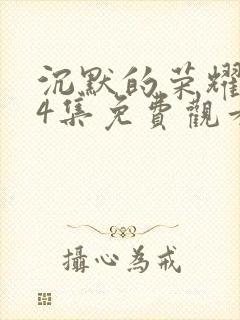 沉默的荣耀
4集免費觀看
攝心為戒